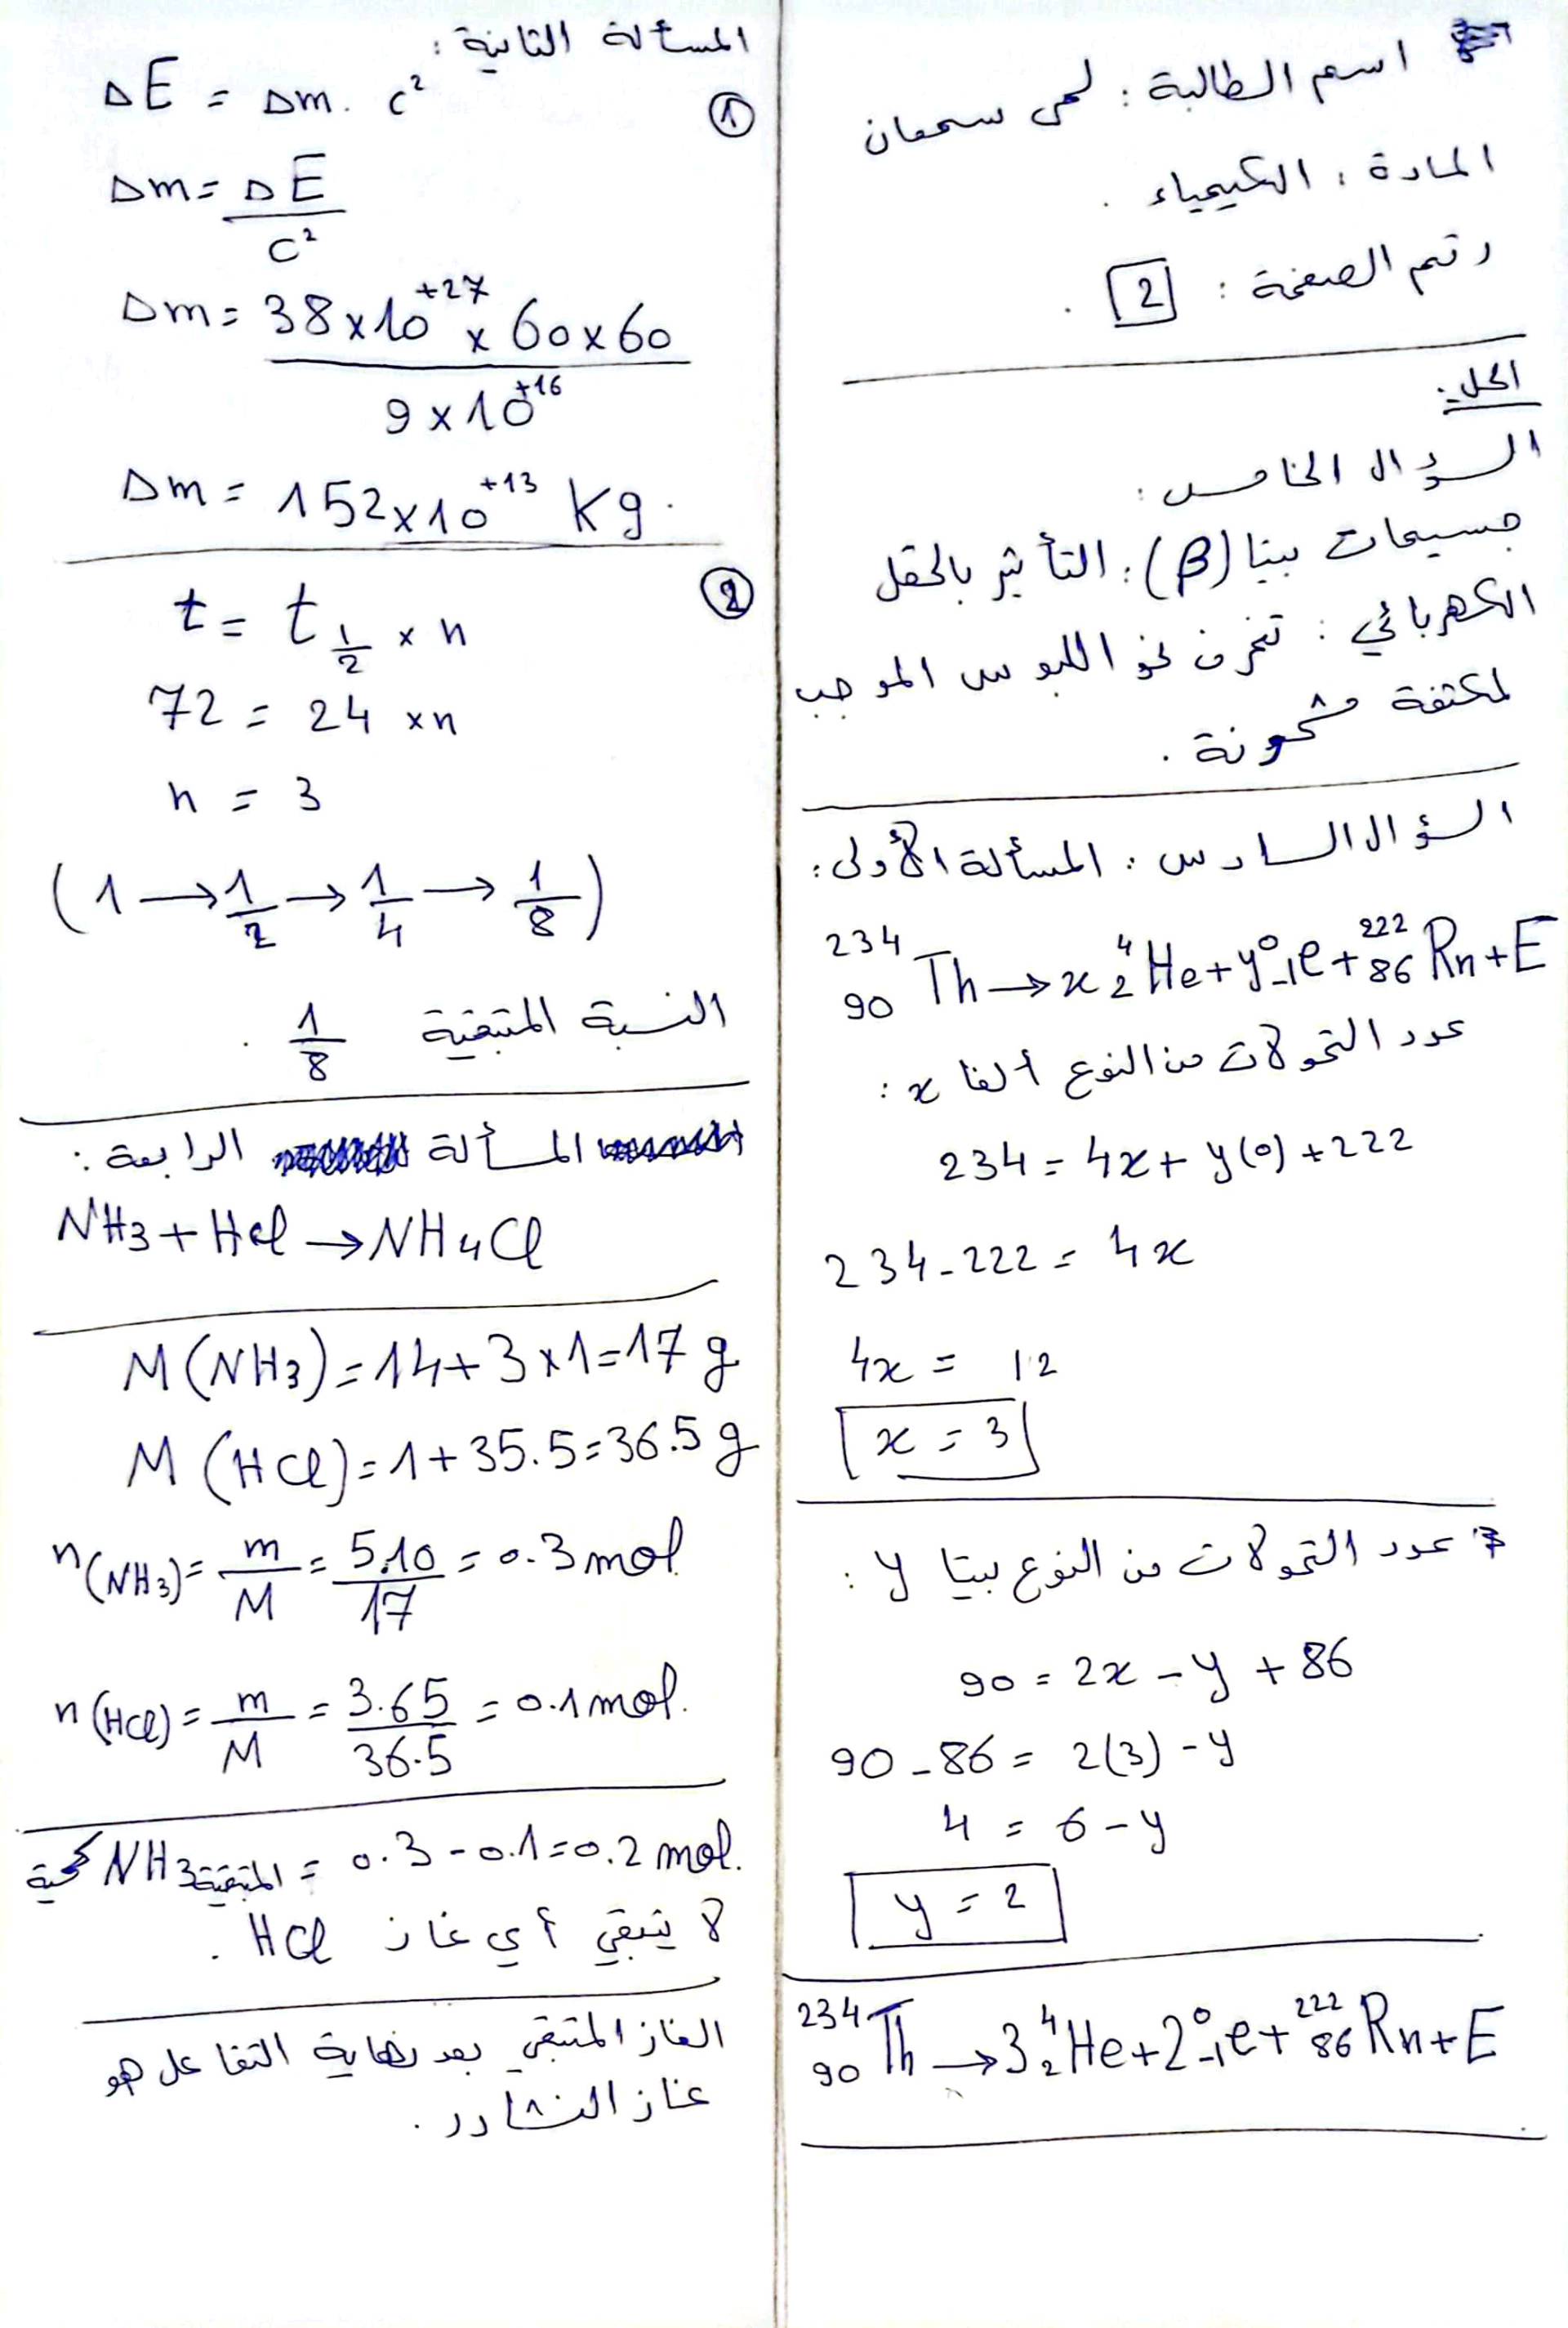 اسم الطالبة : لمى سمعان
المادة : الكيمياء .
رقم الصفحة : 2 .
الحل :
السؤال الخامس :
جسيمات بيتا (β) : التأثير بالحقل
الكهربائي : تنحرف نحو اللبوس الموجب
لمكثفة مشحونة .
السؤال السادس : المسألة الأولى :
²³⁴₉₀Th → x ⁴₂He + y ⁰₋₁e + ²²²₈₆Rn + E
عدد التحولات من النوع ألفا x :
234 = 4x + y(0) + 222
234 - 222 = 4x
4x = 12
x = 3
عدد التحولات من النوع بيتا y :
90 = 2x - y + 86
90 - 86 = 2(3) - y
4 = 6 - y
y = 2
²³⁴₉₀Th → 3 ⁴₂He + 2 ⁰₋₁e + ²²²₈₆Rn + E
المسألة الثانية :
① ΔE = Δm . c²
Δm = ΔE / c²
Δm = 38 × 10⁺²⁷ × 60 × 60 / 9 × 10⁺¹⁶
Δm = 152 × 10⁺¹³ Kg .
② t = t 1/2 × n
72 = 24 × n
n = 3
(1 → 1/2 → 1/4 → 1/8)
النسبة المتبقية 1/8 .
المسألة الرابعة :
NH3 + HCl → NH4Cl
M(NH3) = 14 + 3 × 1 = 17 g
M(HCl) = 1 + 35.5 = 36.5 g
n(NH3) = m/M = 5.10/17 = 0.3 mol
n(HCl) = m/M = 3.65/36.5 = 0.1 mol.
كمية NH3 المتبقية = 0.3 - 0.1 = 0.2 mol.
لا يتبقى أي غاز HCl .
الغاز المتبقي بعد نهاية التفاعل هو
غاز النشادر .